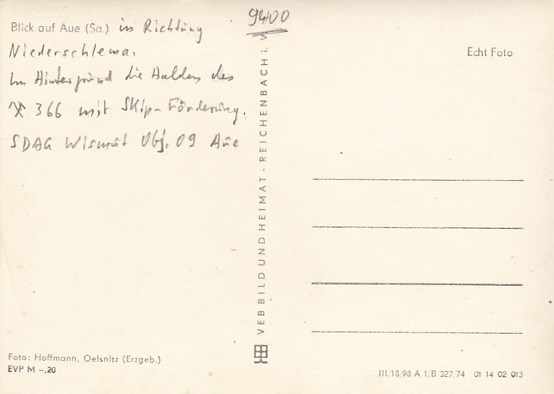 9400
Blick auf Aue (Sa.) in Richtung
Niederschlema.
Im Hintergrund die Halden des
366 mit Skip-Förderung.
SDAG Wismut Obj. 09 Aue
Echt Foto
VEB BILD UND HEIMAT · REICHENBACH i. V
Foto: Hoffmann, Oelsnitz (Erzgeb.)
EVP M –,20
III/18/98 A 1/B 327/74 01 14 02 013